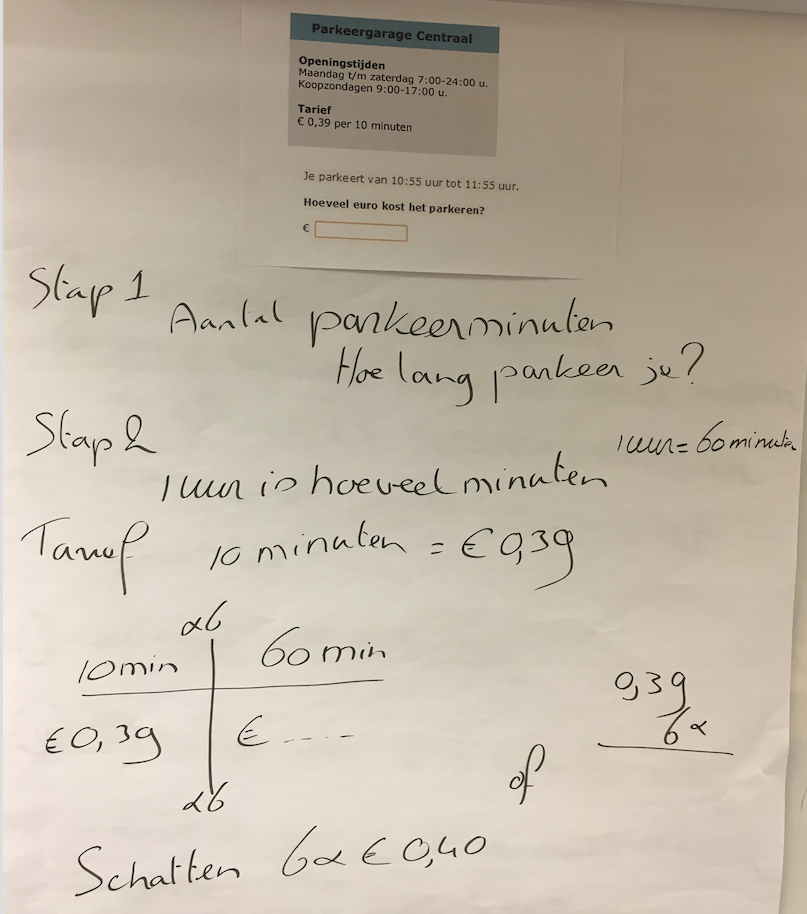 Parkeergarage Centraal
Openingstijden
Maandag t/m zaterdag 7:00-24:00 u.
Koopzondagen 9:00-17:00 u.
Tarief
€ 0,39 per 10 minuten
Je parkeert van 10:55 uur tot 11:55 uur.
Hoeveel euro kost het parkeren?
€
Stap 1
Aantal parkeerminuten
Hoe lang parkeer je?
Stap 2
1 uur = 60 minuten
1 uur is hoeveel minuten
Tarief 10 minuten = € 0,39
x6
10 min 60 min
€0,39 € ....
x6
of
0,39
6x
Schatten 6x € 0,40